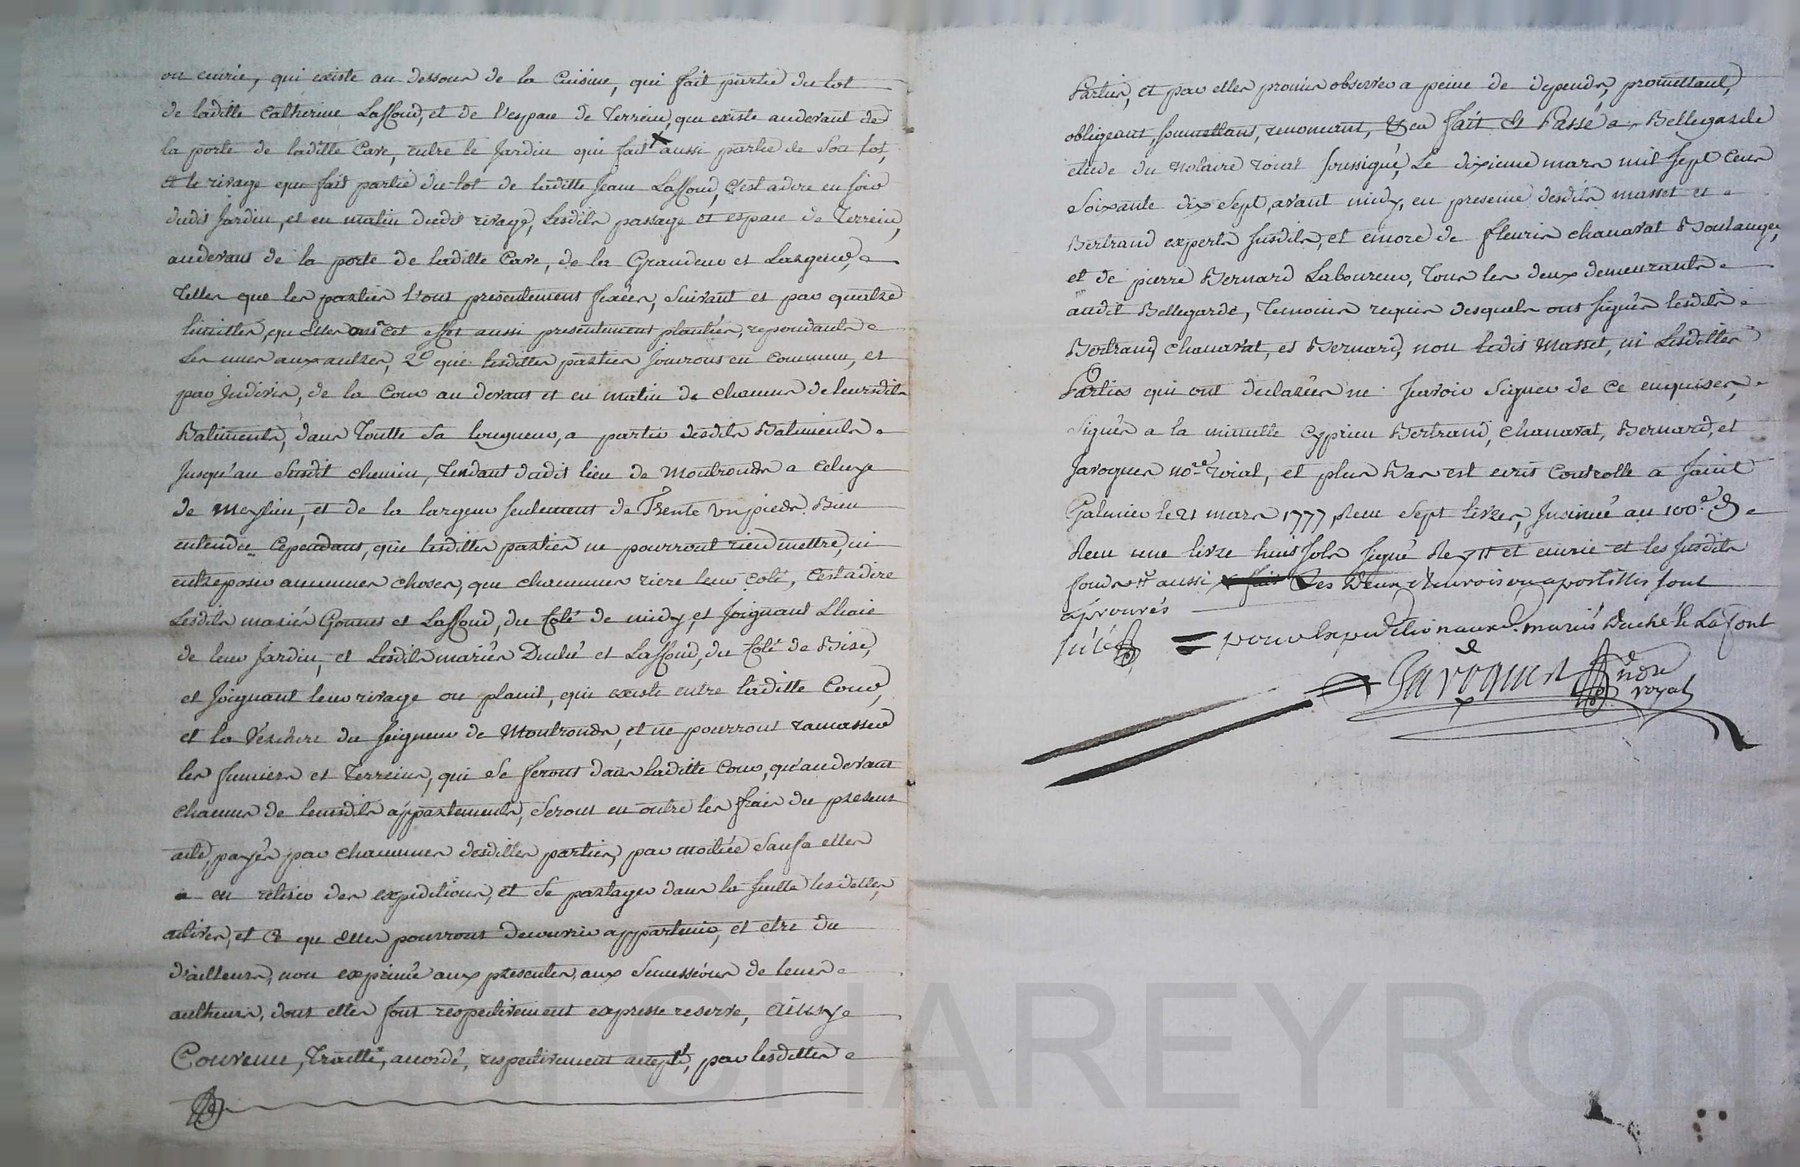 ou curie, qui existe au dessour de la Cuisine, qui fait partie du lot
de laditte Catherine Laffoud, et de l'espace de Terrein, que existe audevant de
la porte de laditte Cave, entre le Jardin qui fait aussi partie de son lot,
et le rivage que fait partie du lot de laditte Jeane Laffoud, c'est adire en soir
dudit Jardin, et en matin dudit rivage, Lesdits passage et espace de Terrein,
audevant de la porte de laditte Cave, de la Grandeur et Largeur,
Telles que les parties l'ont presentement fixées, suivant et par quattre
limittes, qu'elles ont cet effet aussi presentement plantées, repondantes
les unes aux aultres, 2° que lesdittes parties Jouiront en commun, et
par Indivis, de la Cour au devant et en matin de chacun de leursdits
Batiments, dans Toutte sa longueur, a partir desdits Batiments
Jusqu'au susdit chemin, Tendant dudit lieu de Montronds a celuy
de Meylieu, et de la largeur seulement de Trente un pieds. Bien
entendu Cependant, que lesdittes parties ne pourront rien mettre, ni
entreposer aucunes choses, que chacunnes riere leur coté, C'est adire
Lesdits mariés Gonnet et Laffoud, du Coté de midy, et Joignant L'haie
de leur Jardin, et Lesdits mariés Duché et Laffoud, du Coté de Bise,
et Joignant leur rivage ou planit, qui existe entre laditte Cour,
et la Verchere du seigneur de Montronds, et ne pourront ramasser
les fumiers et Terreins, qui se feront dans laditte Cour, qu'audevant
chacun de leursdits appartements, seront en outre les frais du present
acte, payés par chacunnes desdittes parties, par moitié sauf a elles
a en retirer des expeditions, et se partager dans la suitte les dettes,
actives, et ce qu'elles pourront decouvrir appartenir, et etre du
d'ailleurs, non exprimé aux presentes, aux successeurs de leurs
aultheurs, dont elles font respectivement expresse reserve, Ainsy
Convenu, Traitté, accordé, respectivement accepté, par lesdittes
Parties, et par elles promis observer a peine de depends, promettant,
obligeant, soumettant, renonçant, &en Fait et Passé a Bellegarde
etude du Notaire roial soussigné, Le dixieme mars mil sept cens
Soixante dix sept, avant midy, en presence desdits masset et
Bertrand experts susdits, et encore de fleurie chanavat Boulanger,
et de pierre Bernard Laboureur, Tous les deux demeurants
audit Bellegarde, Temoins requis desquels ont signés lesdits
Bertrand, Chanavat, et Bernard, non ledit Masset, ni Lesdittes
Parties qui ont declarées ne sçavoir signer de ce enquises,
signés a la minutte Cyprien Bertrand, Chanavat, Bernard, et
Javoguer no.re roial, et plus Bas est ecrit Controllé a saint
Galmier le 21 mars 1777 reçu sept livres, Insinué au 100.e D
Reçu une livre huit sols signé et curie et les susdits
aussi Les Deux Renvois ou apostilles sont
aprouvés
= pour lexpedition aux d. mariés Duché et La font
Javoguer
n.re royal